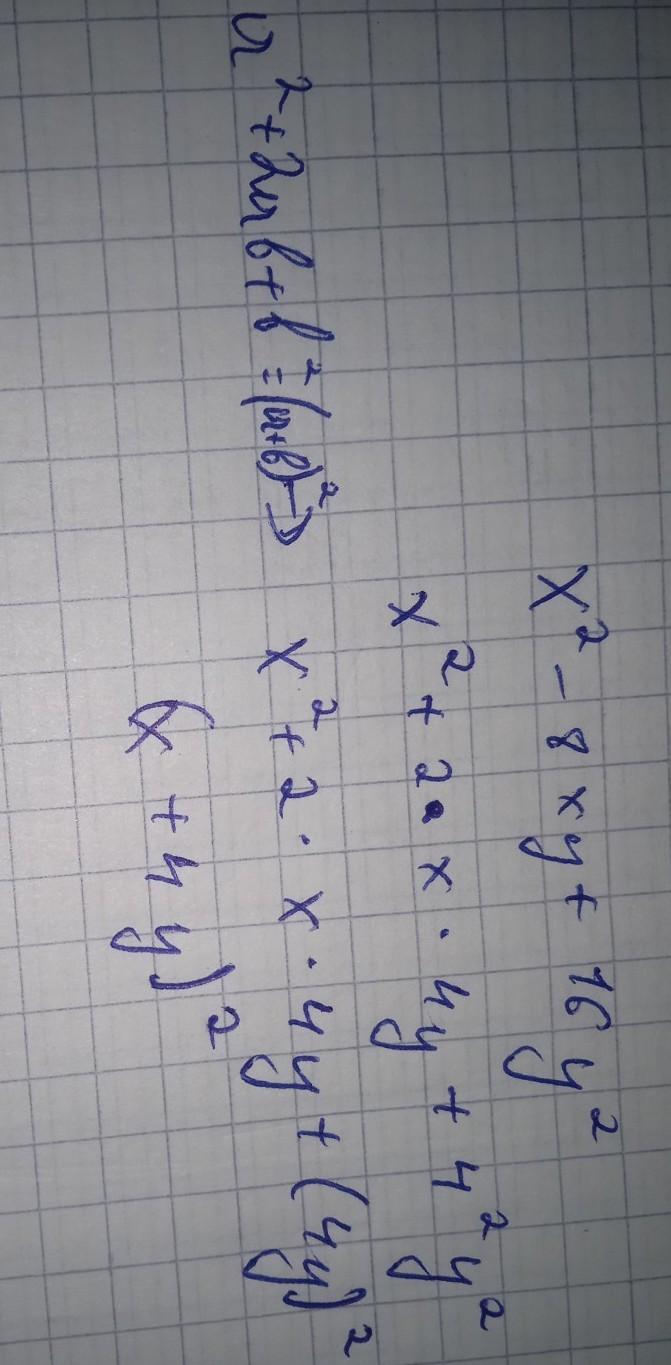 x² - 8xy + 16y²
x² + 2 · x · 4y + 4²y²
a² + 2ab + b² = (a+b)² → x² + 2 · x · 4y + (4y)²
(x + 4y)²